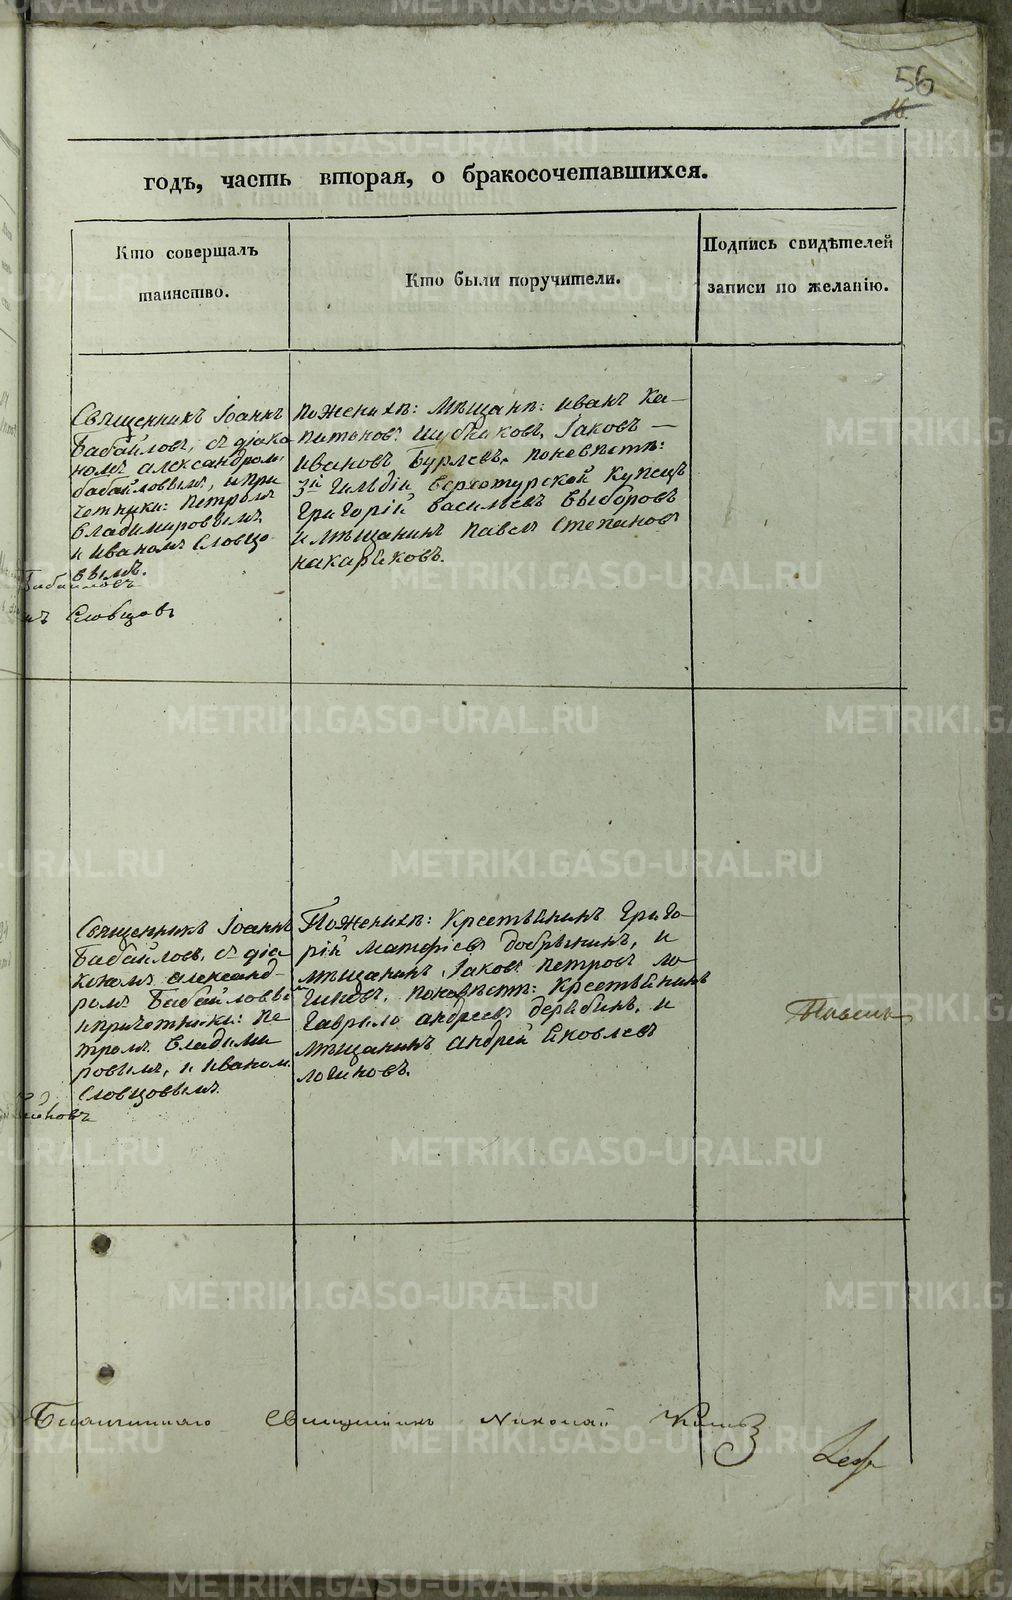 56
16.
годъ, часть вторая, о бракосочетавшихся.
Кто совершалъ
таинство.
Кто были поручители.
Подпись свидѣтелей
записи по желанію.
Священникъ Іоаннъ
Бабайловъ, съ діако
номъ александромъ
бабайловымъ, и при
четники: Петромъ
Владимировымъ
и Иваномъ Словцо
вымъ.
Бабайловъ
Словцовъ
По женихѣ: Мѣщанѣ: иванъ Ка-
питоновъ Шубниковъ, Іаковъ —
ивановъ Бурлевъ, по невѣстѣ:
3й Гильдіи Верхотурской Купецъ
Григорій васильевъ Выборовъ
и мѣщанинъ Павелъ Степановъ
Священникъ Іоаннъ
Бабайловъ, съ діа
кономъ Александ-
ромъ Бабайловы
и причетники: Пе
тромъ Влади ми
ровымъ, и Иваном
Словцовымъ.
По женихѣ: Крестьянинъ Григо-
рій Матфіевъ добрынинъ, и
мѣщанинъ Іаковъ Петровъ ло
гиновъ, по невѣстѣ: Крестьянинъ
Гаврыло андреевъ дерябинъ, и
мѣщанинъ Андрей Яковлевъ
логиновъ.
Благочинный Священникъ Николай
METRIKI.GASO-URAL.RU